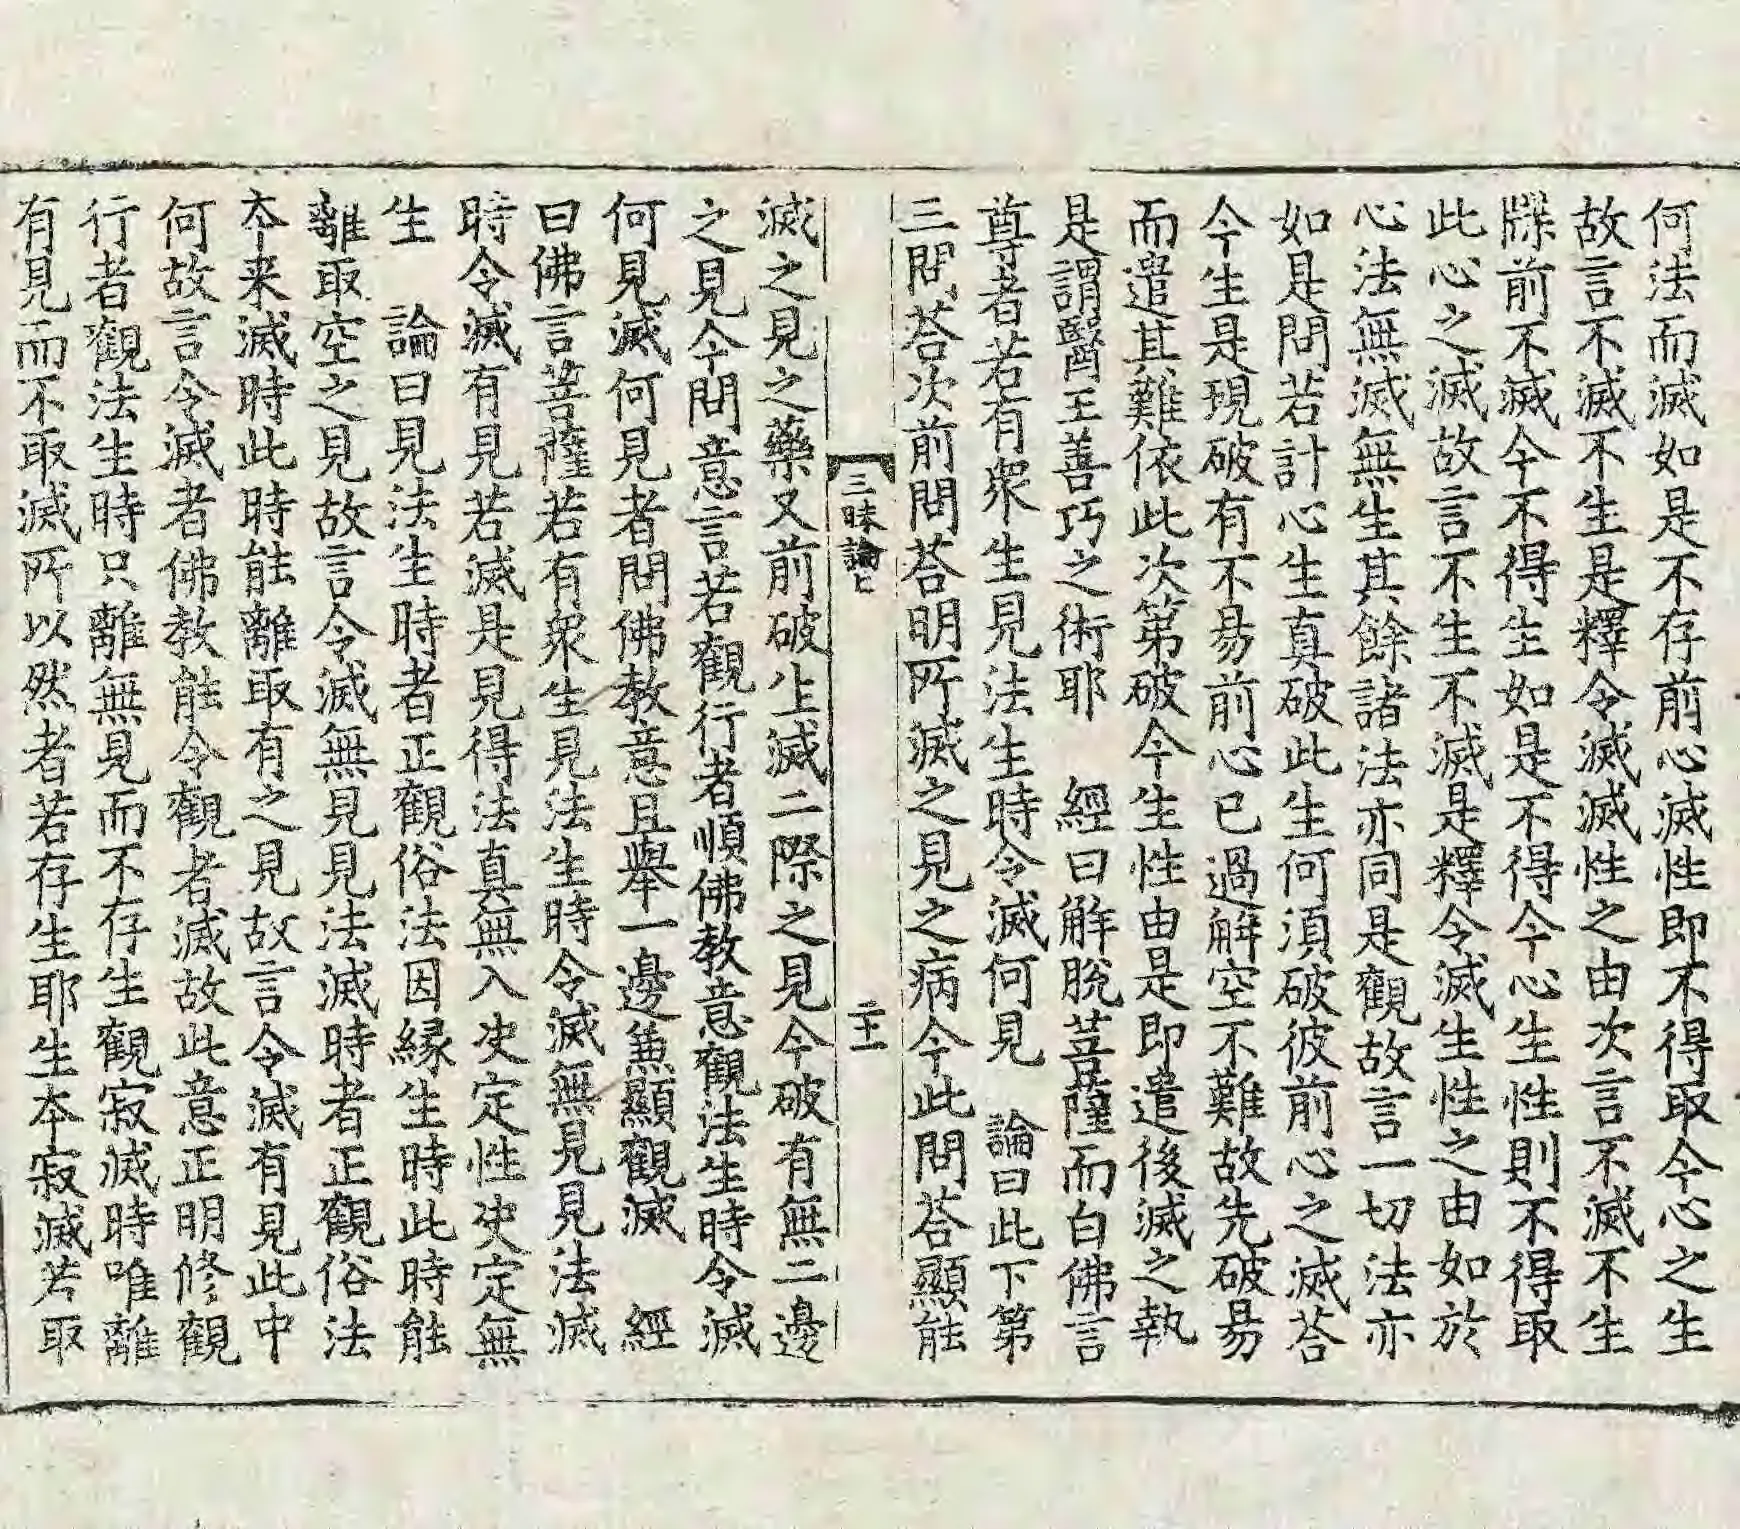 何法而滅如是不存前心滅性即不得取今心之生
故言不滅不生是釋令滅滅性之由次言不滅不生
牒前不滅今不得生如是不得今心生性則不得取
此心之滅故言不生不滅是釋令滅生性之由如於
心法無滅無生其餘諸法亦同是觀故言一切法亦
如是問若計心生真破此生何須破彼前心之滅荅
今生是現破有不易前心已過解空不難故先破易
而遣其難依此次第破今生性由是即遣後滅之執
是謂醫王善巧之術耶　經曰解脫菩薩而白佛言
尊者若有衆生見法生時令滅何見　論曰此下第
三問荅次前問荅明所滅之見之病今此問荅顯能
三昧論上
二十一
滅之見之藥又前破生滅二際之見今破有無二邊
之見今問意言若觀行者順佛教意觀法生時令滅
何見滅何見者問佛教意且舉一邊兼顯觀滅　經
曰佛言菩薩若有衆生見法生時令滅無見見法滅
時令滅有見若滅是見得法真無入决定性决定無
生　論曰見法生時者正觀俗法因緣生時此時能
離取空之見故言令滅無見見法滅時者正觀俗法
本来滅時此時能離取有之見故言令滅有見此中
何故言令滅者佛教能令觀者滅故此意正明修觀
行者觀法生時只離無見而不存生觀寂滅時唯離
有見而不取滅所以然者若存生耶生本寂滅若取